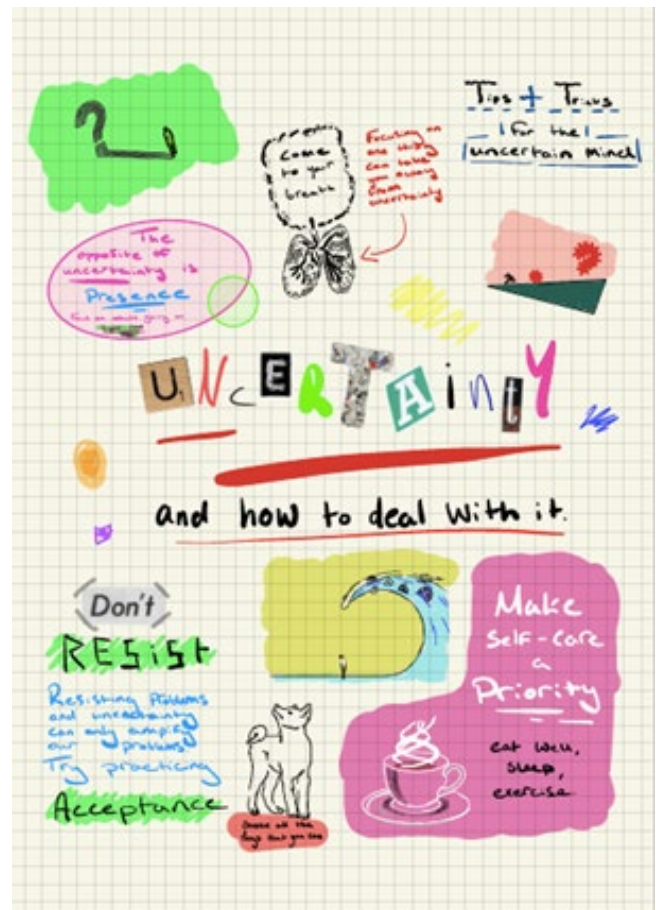 Tips + Tricks
for the
uncertain mind
come
to your
breath
Focusing on
one thing
can take
you away
from
uncertainty
The
opposite of
uncertainty is
Presence
UNcERTAinty
and how to deal with it.
Don't
RESist
Resisting Problems
and uncertainty
can only amplify
our problems
Try practicing
Acceptance
Make
Self-care
a
Priority
eat well,
sleep,
exercise
dogs that you see